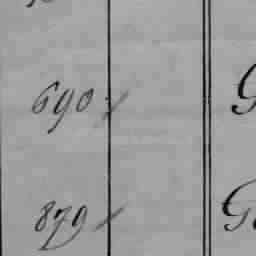 690
879